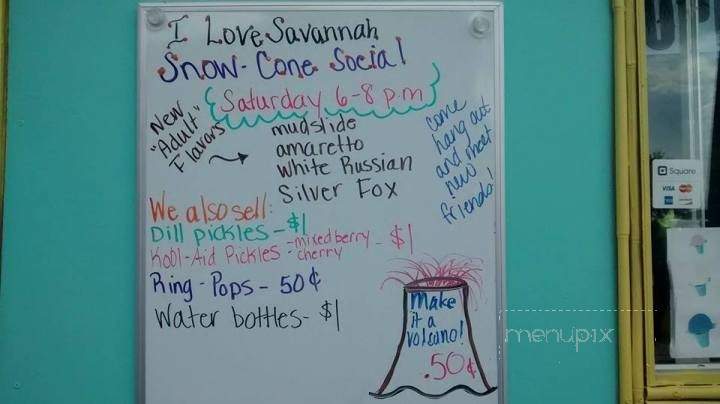 I Love Savannah
Snow-Cone Social
Saturday 6-8 p.m
New
"Adult"
Flavors
mudslide
amaretto
White Russian
Silver Fox
come
hang out
and meet
new
friends!
We also sell:
Dill pickles - $1
Kool-Aid Pickles - mixed berry - $1
cherry
Ring-Pops - 50¢
Water bottles - $1
Make
it a
volcano!
.50¢
Square
VISA
menupix